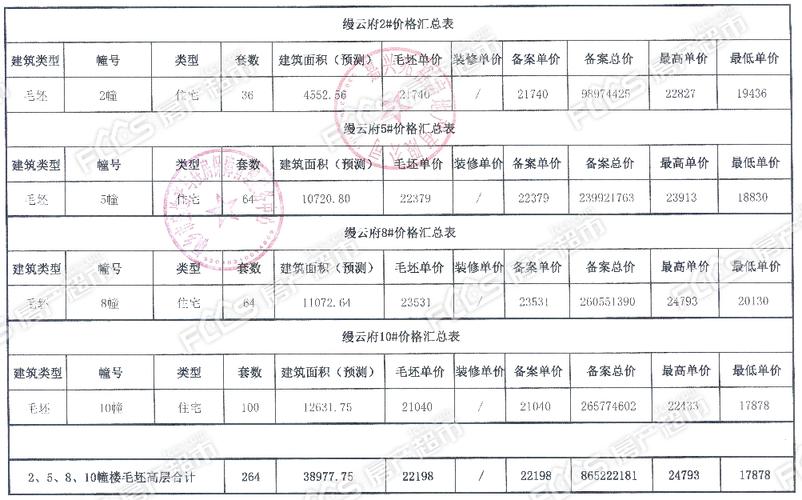 缦云府2#价格汇总表
建筑类型 幢号 类型 套数 建筑面积（预测） 毛坯单价 装修单价 备案单价 备案总价 最高单价 最低单价
毛坯 2幢 住宅 36 4552.56 21740 / 21740 98974425 22827 19436
缦云府5#价格汇总表
建筑类型 幢号 类型 套数 建筑面积（预测） 毛坯单价 装修单价 备案单价 备案总价 最高单价 最低单价
毛坯 5幢 住宅 64 10720.80 22379 / 22379 239921763 23913 18830
缦云府8#价格汇总表
建筑类型 幢号 类型 套数 建筑面积（预测） 毛坯单价 装修单价 备案单价 备案总价 最高单价 最低单价
毛坯 8幢 住宅 64 11072.64 23531 / 23531 260551390 24793 20130
缦云府10#价格汇总表
建筑类型 幢号 类型 套数 建筑面积（预测） 毛坯单价 装修单价 备案单价 备案总价 最高单价 最低单价
毛坯 10幢 住宅 100 12631.75 21040 / 21040 265774602 22433 17878
2、5、8、10幢楼毛坯高层合计 264 38977.75 22198 / 22198 865222181 24793 17878
FCCS房产超市